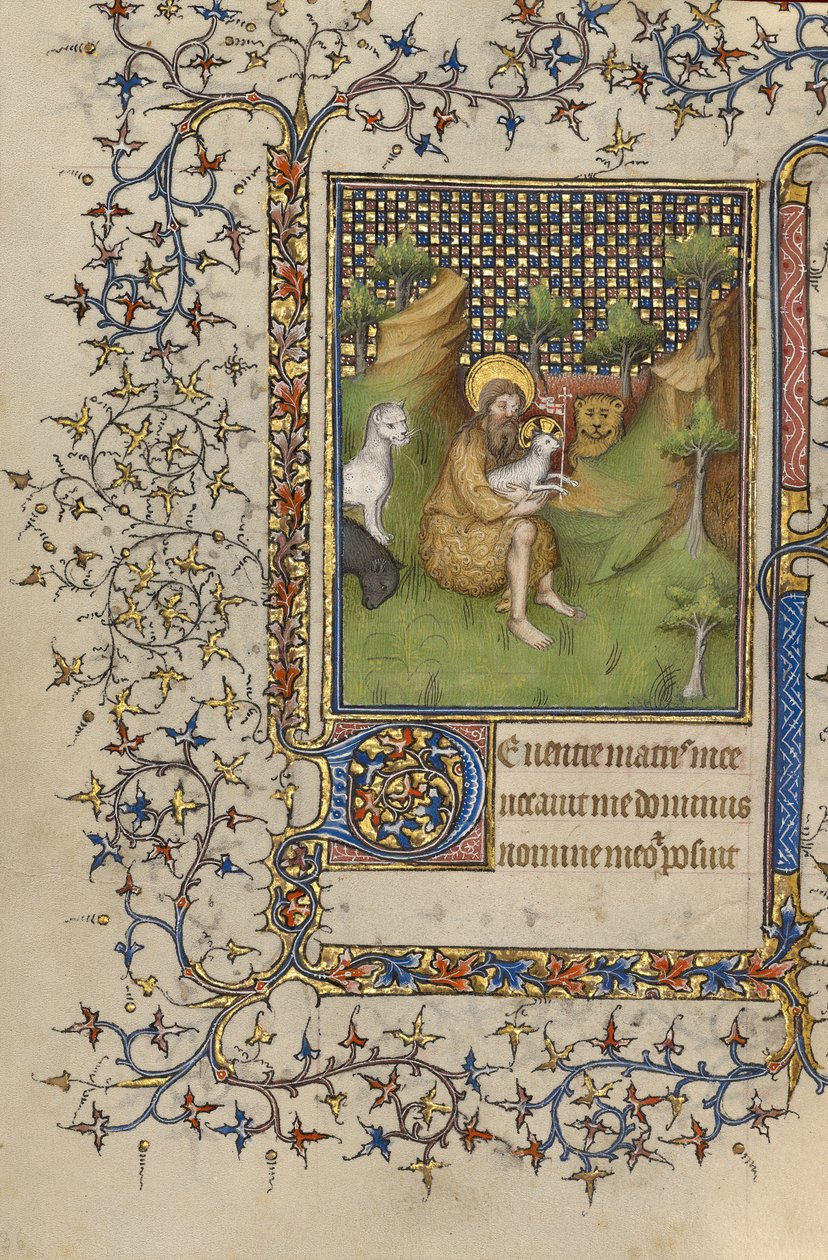 De ventre matris mee
vocavit me dominus
nomine meo⁊ posuit
36